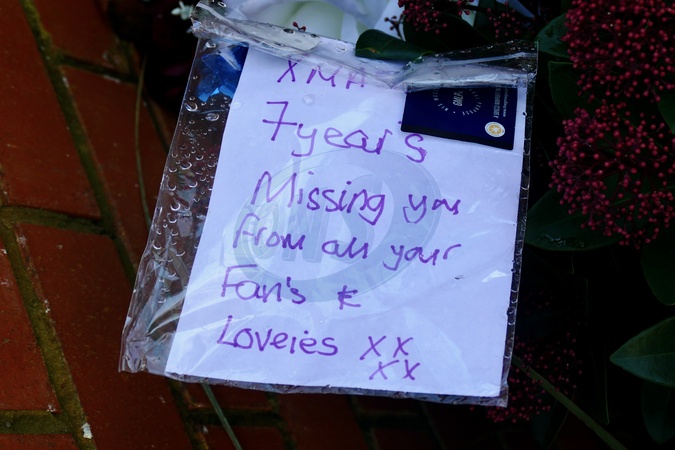 XMA
7 years
Missing you
from all your
Fan's &
Loveies XX
XX